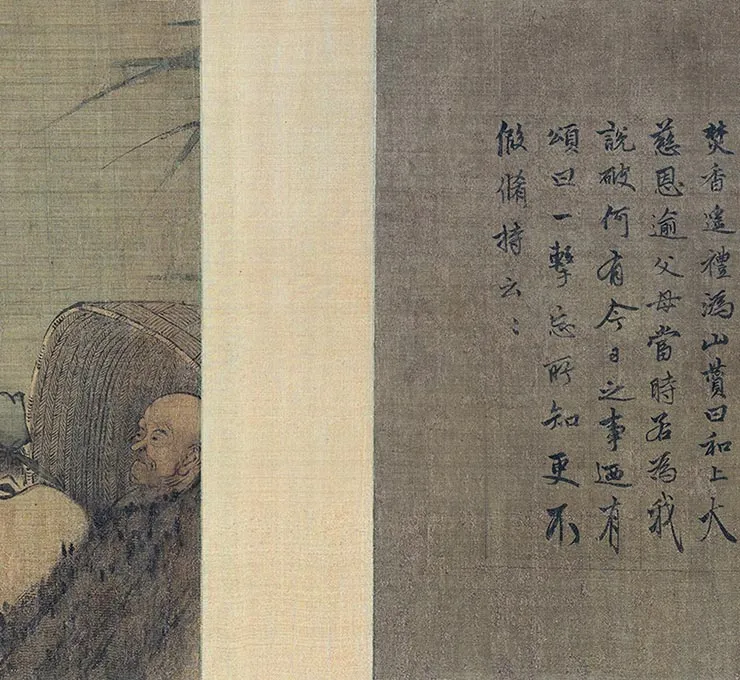 焚香遙禮溈山贊曰和上大
慈恩逾父母當時若為我
說破何有今日之事迺有
頌曰一擊忘所知更不
假脩持云〻